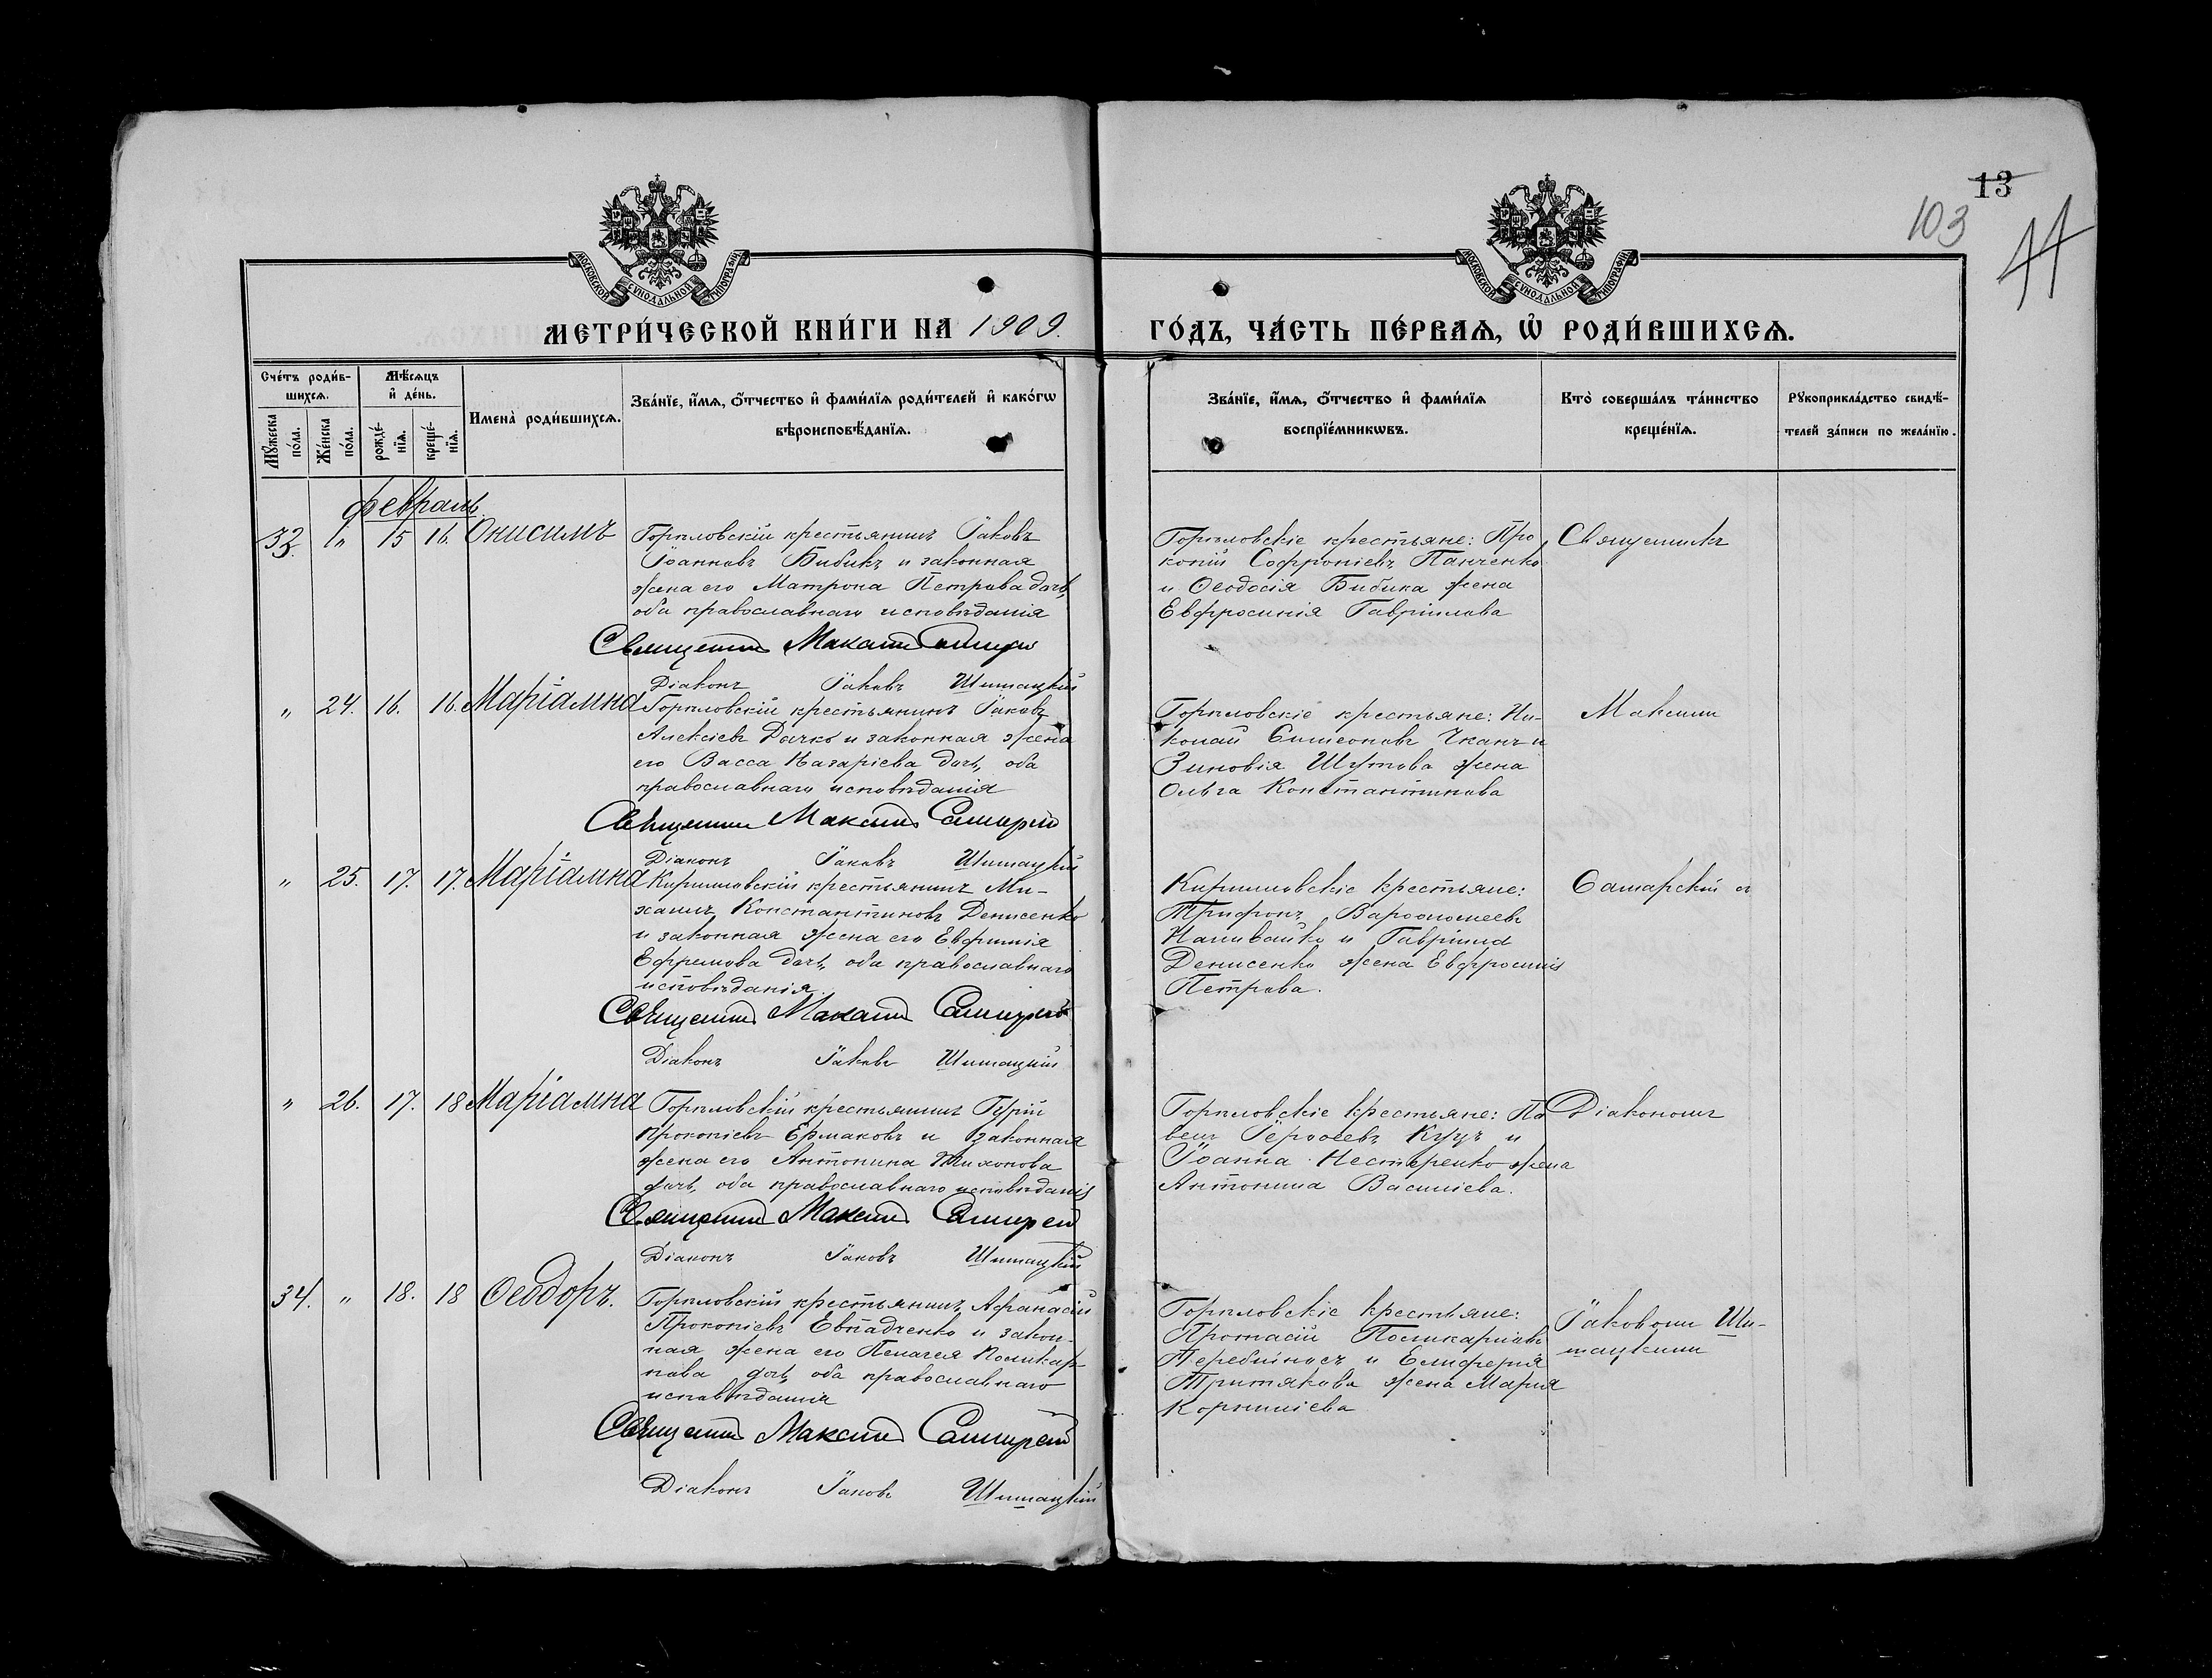 13
103
МОСКОВСКОЙ СУНОДАЛЬНОЙ ТИПОГРАФІИ
МОСКОВСКОЙ СУНОДАЛЬНОЙ ТИПОГРАФІИ
МЕТРИ́ЧЕСКОЙ КНИ́ГИ НА 1909.
ГО́ДЪ, ЧА́СТЬ ПЕ́РВАѦ, Ѽ РОДИ́ВШИХСѦ.
Сче́тъ роди́в-
шихсѧ.
Мꙋ́жеска по́ла.
Же́нска по́ла.
Мѣ́сѧцъ
и҆ де́нь.
рожде́-нїѧ.
креще́-нїѧ.
Имена̀ роди́вшихсѧ.
Зва́нїе, и҆́мѧ, ѻ҆́тчество и҆ фами́лїѧ роди́телей и҆ како́гѡ
вѣроисповѣ́данїѧ.
Зва́нїе, и҆́мѧ, ѻ҆́тчество и҆ фами́лїѧ
воспрїе́мникѡвъ.
Кто̀ соверша́лъ та́инство
креще́нїѧ.
Рꙋкоприкла́дство свидѣ́-
телей за́писи по жела́нїю.
февраль
32. „ 15 16. Онисимъ
Горпловскій крестьянинъ Іаковъ
Іоанновъ Бибикъ и законная
жена его Матрона Петрова дочь,
оба православнаго исповѣданія
Священникъ Максимъ Самарскій
Діаконъ Іаковъ Шишацкій
Горпловскіе крестьяне: Про
копій Софроніевъ Панченко
и Ѳеодосія Бибика жена
Евфросинія Гавріилова
Священникъ
„ 24. 16. 16. Маріамна
Горпловскій крестьянинъ Іаковъ
Алексіевъ Дачко и законная жена
его Васса Назаріева дочь, оба
православнаго исповѣданія
Священникъ Максимъ Самарскій
Діаконъ Іаковъ Шишацкій
Горпловскіе крестьяне: Ни-
колай Симеоновъ Чканъ и
Зиновія Шутова жена
Ольга Константинова
Максим
„ 25. 17. 17. Маріамна
Кирилловскій крестьянинъ Ми-
хаилъ Константиновъ Денисенко
и законная жена его Евфимія
Ефремова дочь, оба православнаго
исповѣданія.
Священникъ Максимъ Самарскій
Діаконъ Іаковъ Шишацкій
Кирилловскіе крестьяне:
Трифонъ Варѳоломеевъ
Наливайко и Гавріила
Денисенко жена Евфросинія
Петрова.
Самарскій съ
„ 26. 17. 18 Маріамна
Горпловскій крестьянинъ Гурій
Прокопіевъ Ермаковъ и законная
жена его Антонина Тихонова
дочь, оба православнаго исповѣданія
Священникъ Максимъ Самарскій
Діаконъ Іаковъ Шишацкій
Горпловскіе крестьяне: Па
велъ Іероѳеевъ Куцъ и
Іоанна Нестеренко жена
Антонина Василіева.
Діакономъ
34. „ 18. 18 Ѳеодоръ.
Горпловскій крестьянинъ Афанасій
Прокопіевъ Евпадченко и закон-
ная жена его Пелагея Поликар-
пова дочь, оба православнаго
исповѣданія
Священникъ Максимъ Самарскій
Діаконъ Іаковъ Шишацкій
Горпловскіе крестьяне:
Протасій Поликарповъ
Перебийносъ и Елиферія
Тритякова жена Марія
Корниліева
Іаковомъ Ши-
шацкимъ